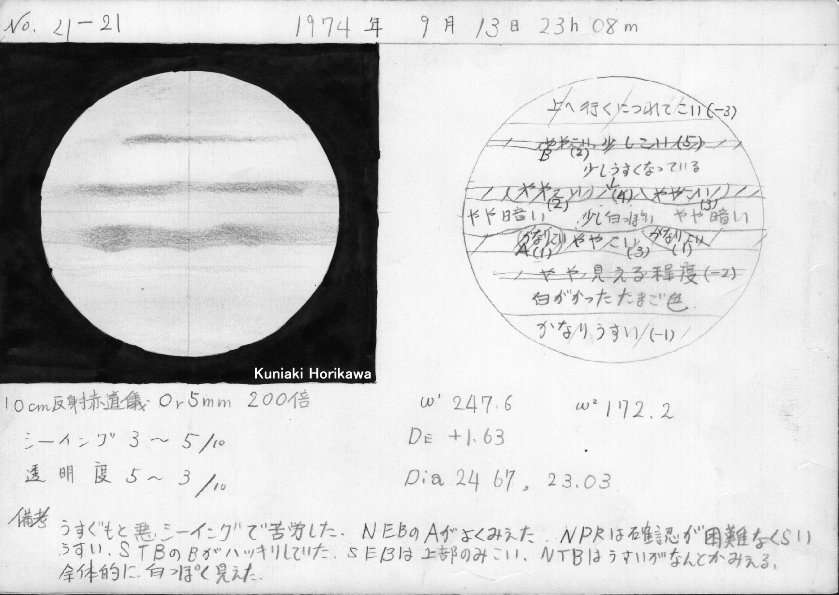 No. 21-21
1974年 9月 13日 23h 08m
上へ行くにつれてこい(-3)
ややこい 少しこい(5)
B (2)
少しうすくなっている
ややこい (4) ややこい
(2) (3)
やや暗い 少し白っぽい やや暗い
かなりこい ややこい かなりこい
A(1) (3) (1)
やや見える程度(-2)
白がかったたまご色
かなりうすい(-1)
Kuniaki Horikawa
10cm反射赤道儀 Or5mm 200倍
シーイング 3〜5/10
透明度 5〜3/10
ω¹ 247.6 ω² 172.2
DE +1.63
Dia 24 67, 23.03
備考 うすぐもと悪シーイングで苦労した、NEBのAがよくみえた. NPRは確認が困難なくらい
うすい、STBのBがハッキリしていた. SEBは上部のみこい、NTBはうすいがなんとかみえる、
全体的に白っぽく見えた.